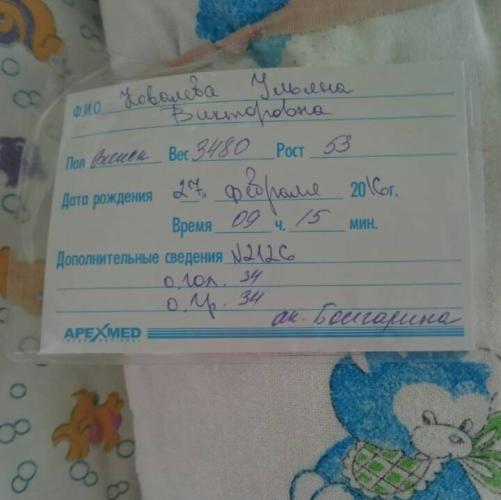 Ф.И.О Ковалева Ульяна
Викторовна
Пол женск Вес 3480 Рост 53
Дата рождения "27" февраля 2016г.
Время 09 ч. 15 мин.
Дополнительные сведения №2126
о.гол. 34
о.гр. 34
ак.
APEXMED
INTERNATIONAL